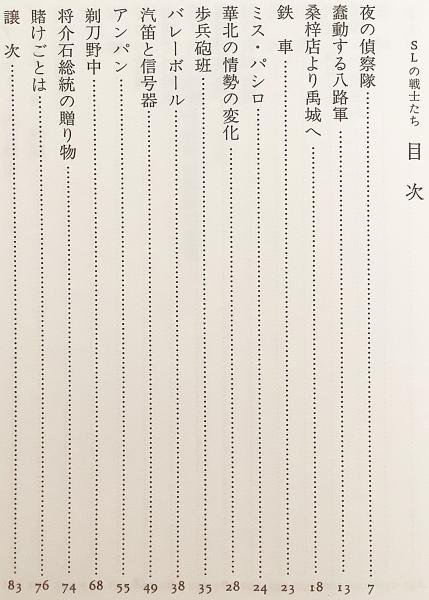 SLの戦士たち 目次
夜の偵察隊 7
蠢動する八路軍 13
桑梓店より禹城へ 18
鉄車 23
ミス・パシロ 24
華北の情勢の変化 28
歩兵砲班 35
バレーボール 38
汽笛と信号器 49
アンパン 55
剃刀野中 68
将介石総統の贈り物 74
賭けごとは 76
譲次 83